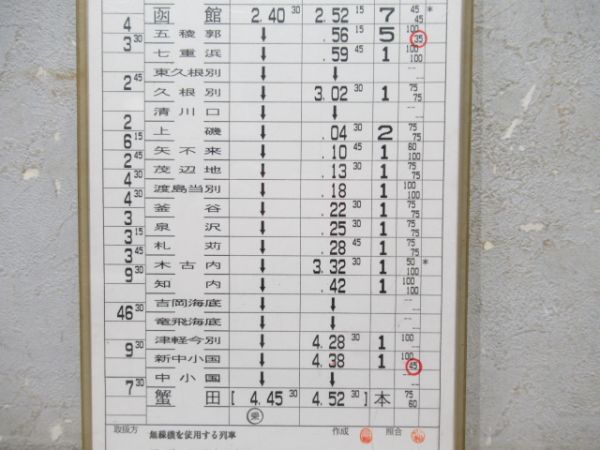 4 函館 2.40 30 2.52 15 7 45 45 *
3 30 五稜郭 ↓ .56 15 5 100 35
七重浜 ↓ .59 45 1 100 100
東久根別 ↓ ↓
2 45 久根別 ↓ 3.02 30 1 75 75
清川口 ↓ ↓
2 上磯 ↓ .04 30 2 75 75
6 15 矢不来 ↓ .10 45 1 60 100
2 45 茂辺地 ↓ .13 30 1 75 75
4 渡島当別 ↓ .18 1 100 100
4 30 釜谷 ↓ .22 30 1 75 75
3 泉沢 ↓ .25 30 1 75 75
3 15 札苅 ↓ .28 45 1 75 75
3 45 木古内 ↓ 3.32 30 1 50 100 *
9 30 知内 ↓ .42 1 100 100
吉岡海底 ↓ ↓
46 30 竜飛海底 ↓ ↓
津軽今別 ↓ 4.28 30 1 100 100
9 30 新中小国 ↓ 4.38 1 100 45
中小国 ↓ ↓
7 30 蟹田 [ 4.45 30 4.52 30 ] 本 75 60
乗
取扱方 無線機を使用する列車 作成 照合